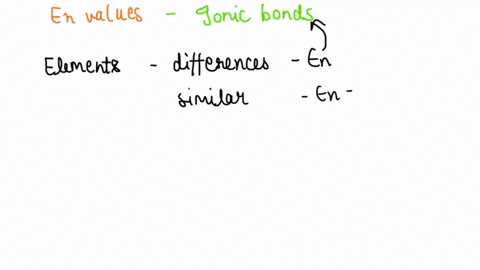 En values - Ionic bonds
Elements - differences - En
similar - En -